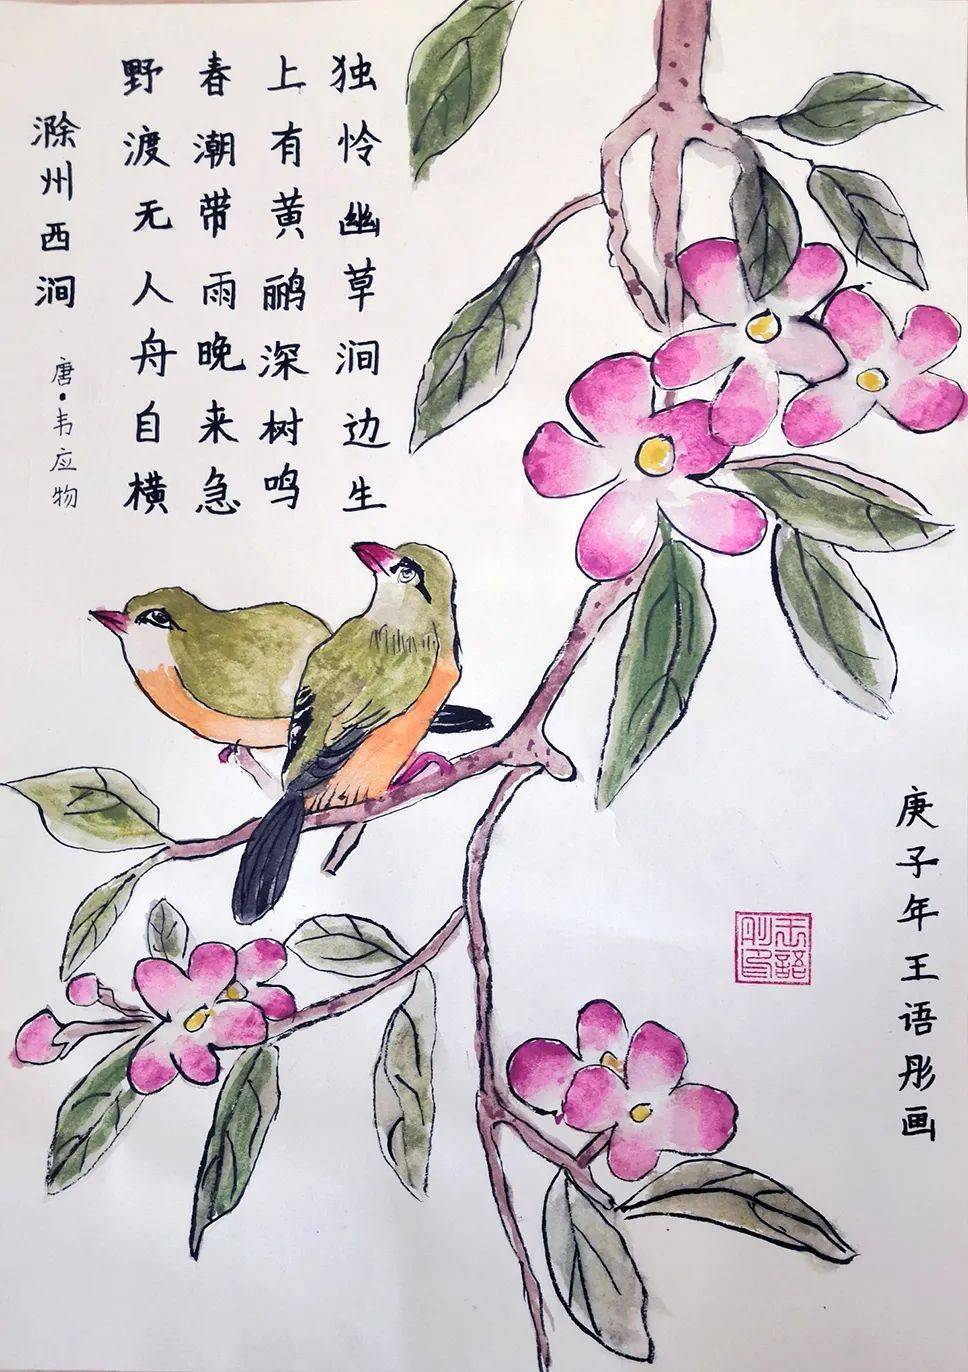 独怜幽草涧边生
上有黄鹂深树鸣
春潮带雨晚来急
野渡无人舟自横
滁州西涧
唐·韦应物
庚子年王语彤画
王語彤印